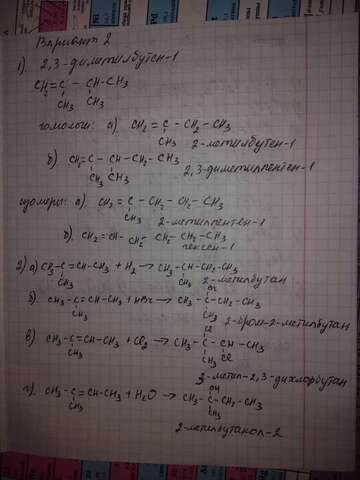 Вариант 2
1). 2,3-диметилбутен-1
CH2=C - CH-CH3
CH3 CH3
гомологи: а). CH2 = C - CH2 - CH3
CH3 2-метилбутен-1
б) CH2=C - CH - CH2 - CH3
CH3 CH3 2,3-диметилпентен-1
изомеры: а). CH2 = C - CH2 - CH2 - CH3
CH3 2-метилпентен-1
б). CH2 = CH - CH2 - CH2 - CH2 - CH3
гексен-1
2) а) CH3-C = CH-CH3 + H2 → CH3-CH-CH2-CH3
CH3 CH3 2-метилбутан
Br
б) CH3-C = CH-CH3 + HBr → CH3-C-CH2-CH3
CH3 CH3 2-бром-2-метилбутан
Cl
в) CH3-C = CH-CH3 + Cl2 → CH3-C - CH - CH3
CH3 CH3 Cl
2-метил-2,3-дихлорбутан
OH
г) CH3-C = CH-CH3 + H2O → CH3-C-CH2-CH3
CH3 CH3
2-метилбутанол-2